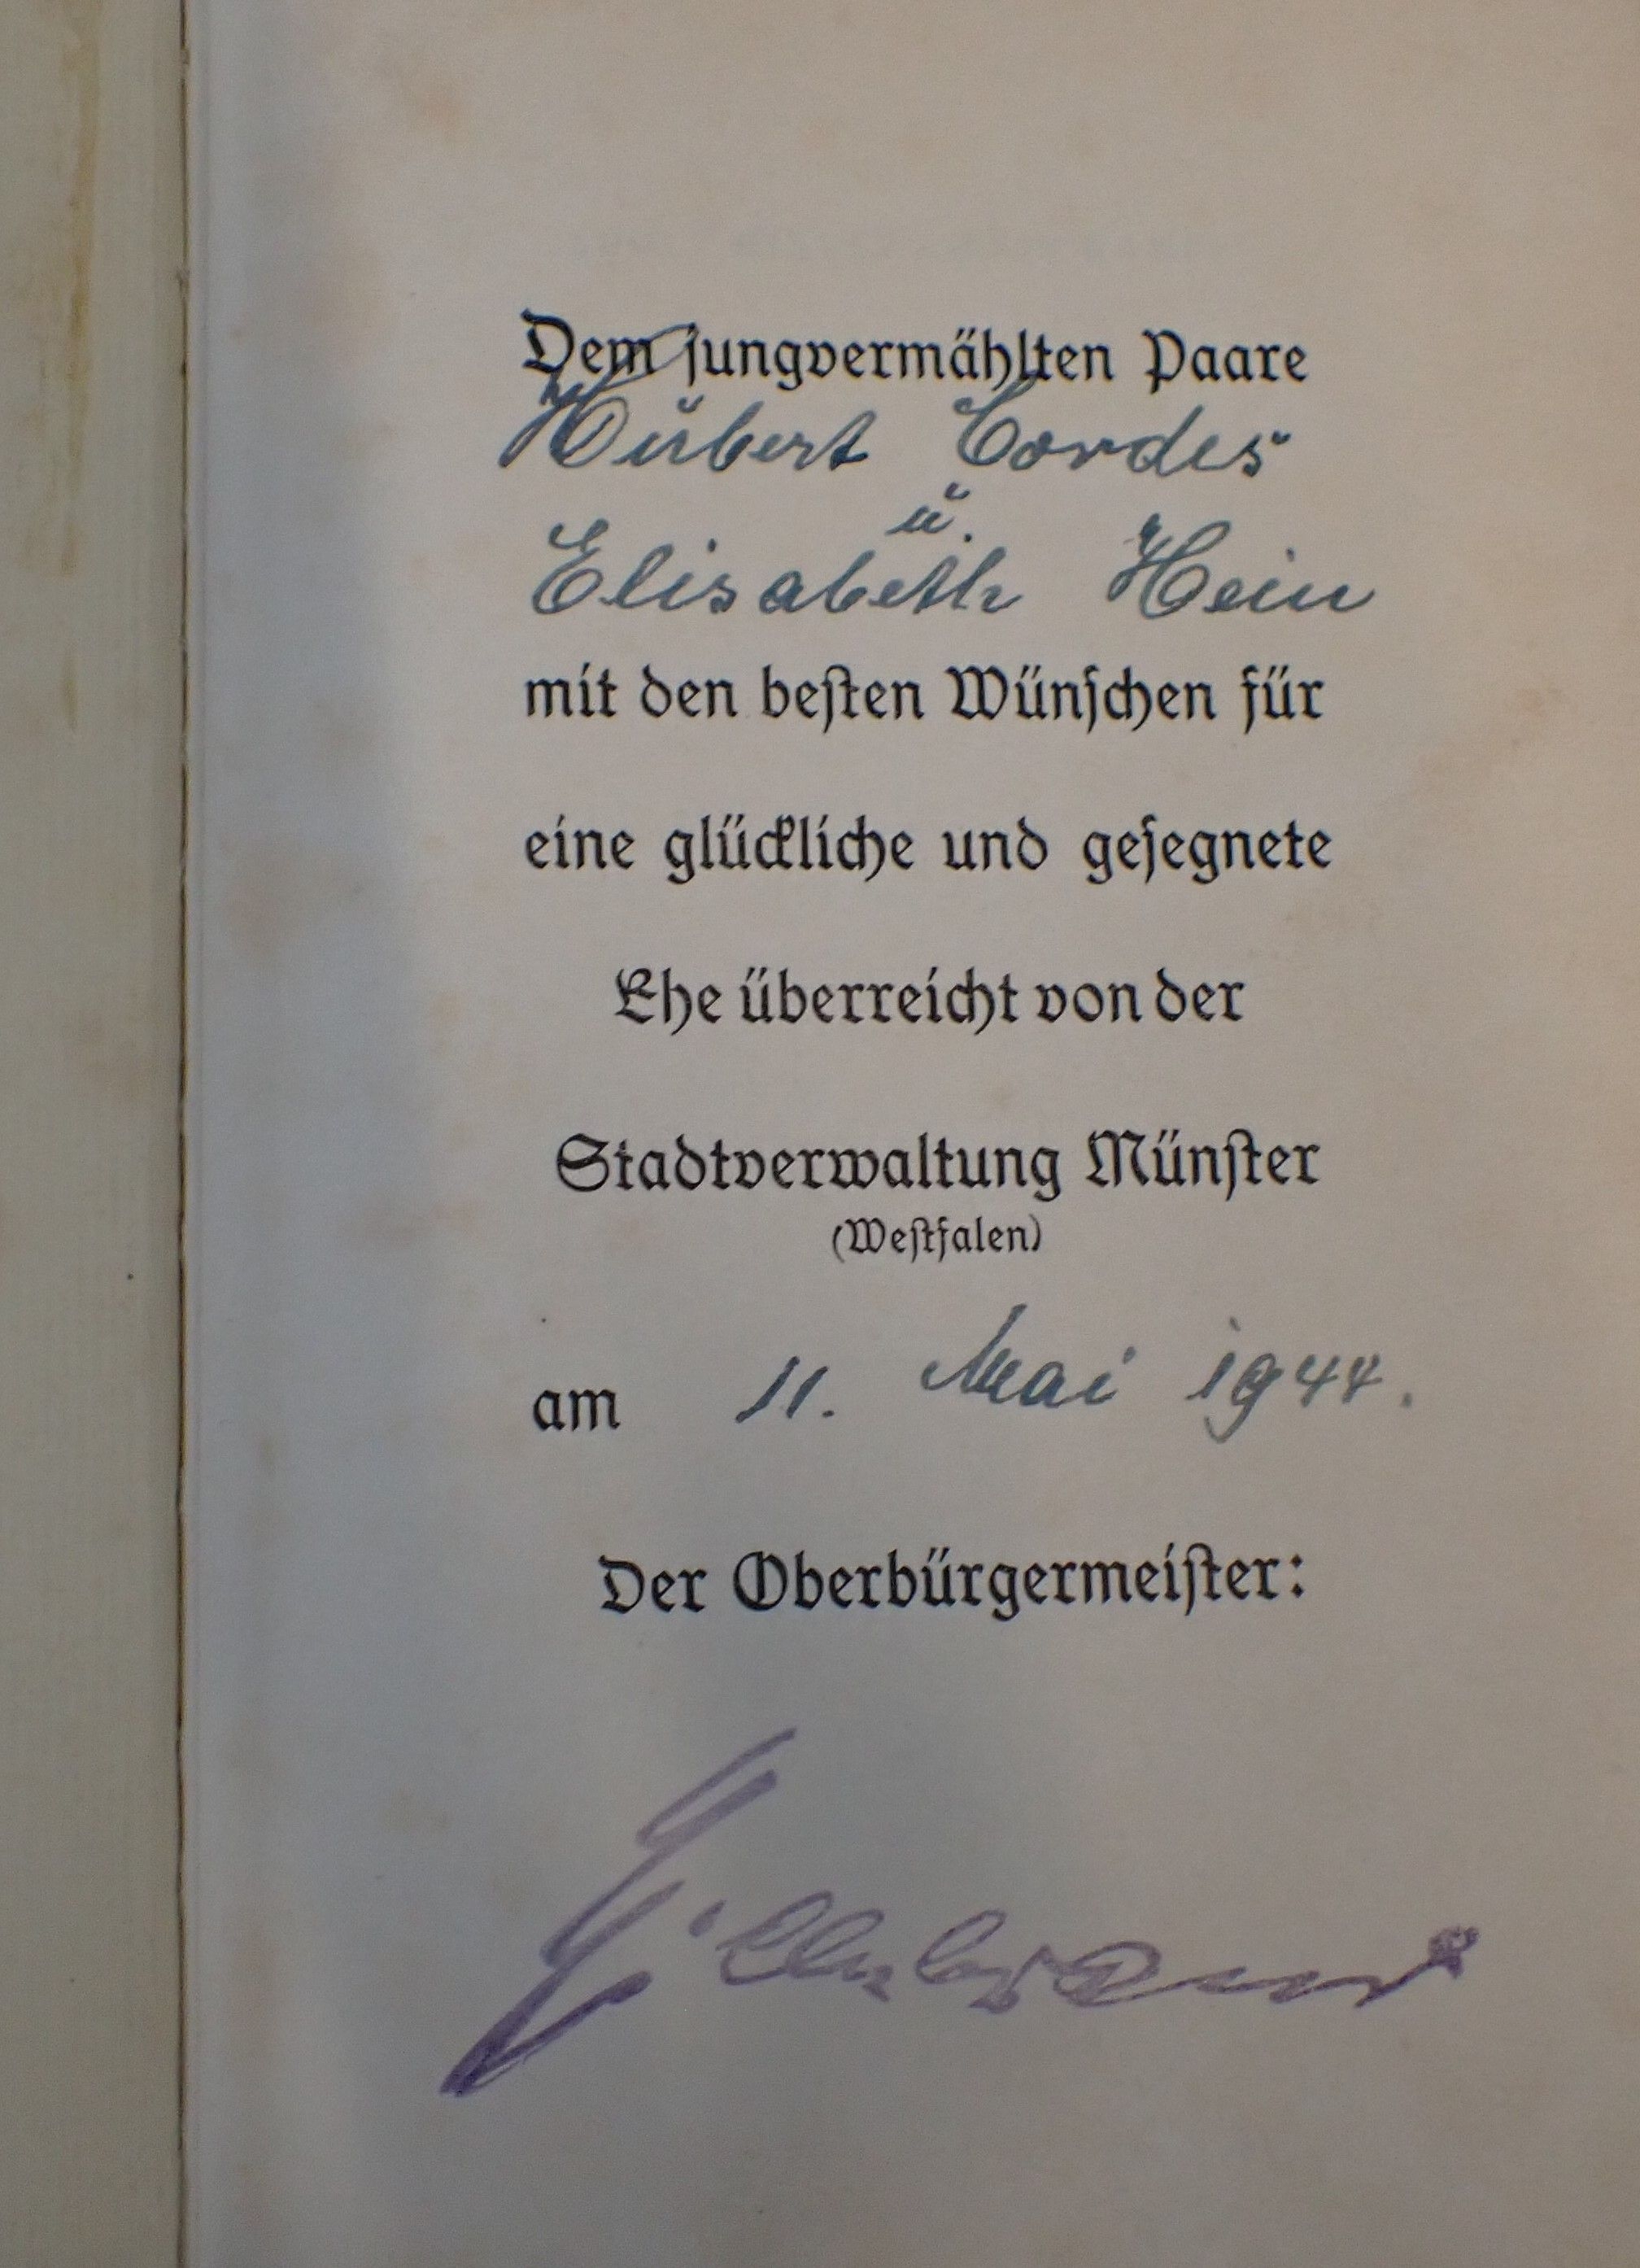 Dem jungvermählten Paare
Hubert Cordes
u.
Elisabeth Hein
mit den besten Wünschen für
eine glückliche und gesegnete
Ehe überreicht von der
Stadtverwaltung Münster
(Westfalen)
am 11. Mai 1944.
Der Oberbürgermeister: